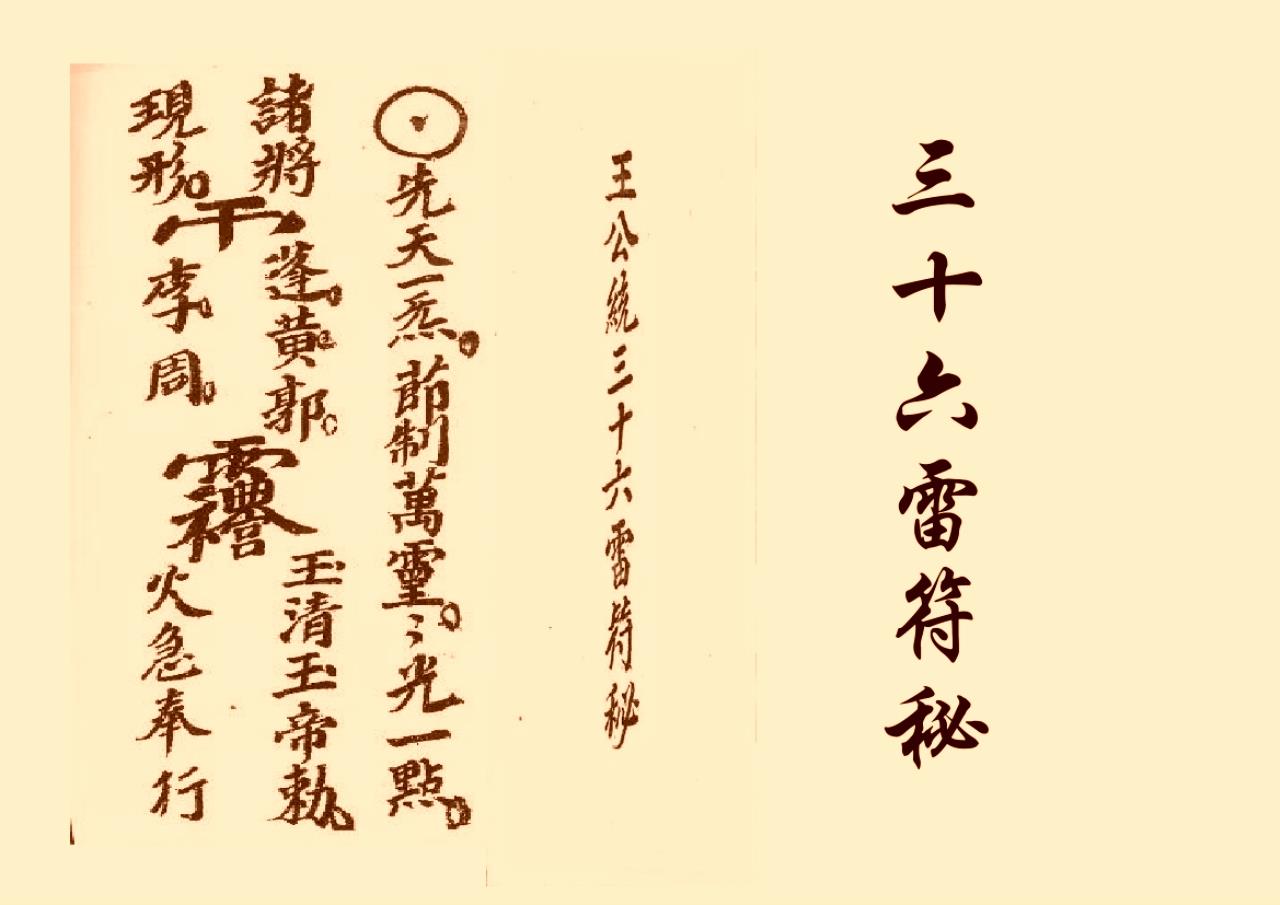 三十六雷符秘
王公統三十六雷符秘
先天一炁。莭制萬靈。〻光一點。
諸將
現形。
蓬。黃。郭。
李。周。
玉清玉帝勅。
火急奉行